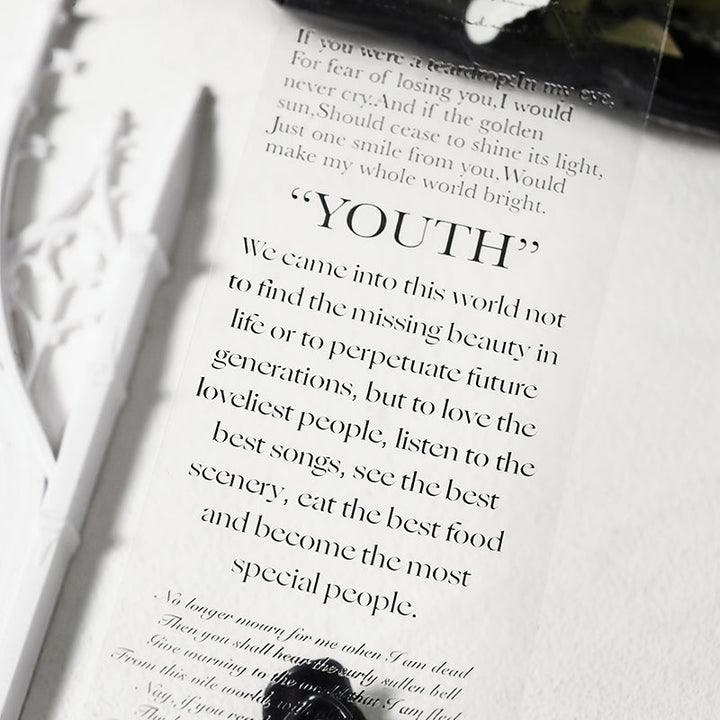 If you were a teardrop:In my eye,
For fear of losing you,I would
never cry.And if the golden
sun,Should cease to shine its light,
Just one smile from you,Would
make my whole world bright.
“YOUTH”
We came into this world not
to find the missing beauty in
life or to perpetuate future
generations, but to love the
loveliest people, listen to the
best songs, see the best
scenery, eat the best food
and become the most
special people.
No longer mourn for me when I am dead
Then you shall hear the surly sullen bell
Give warning to the world that I am fled
From this vile world, with
Nay, if you read
The